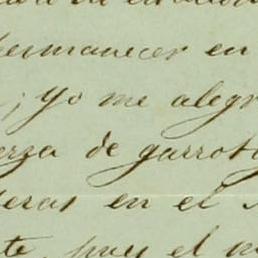 permanecer en
¡Yo me alegr
erza de garrot
deras en el
te, pues el m